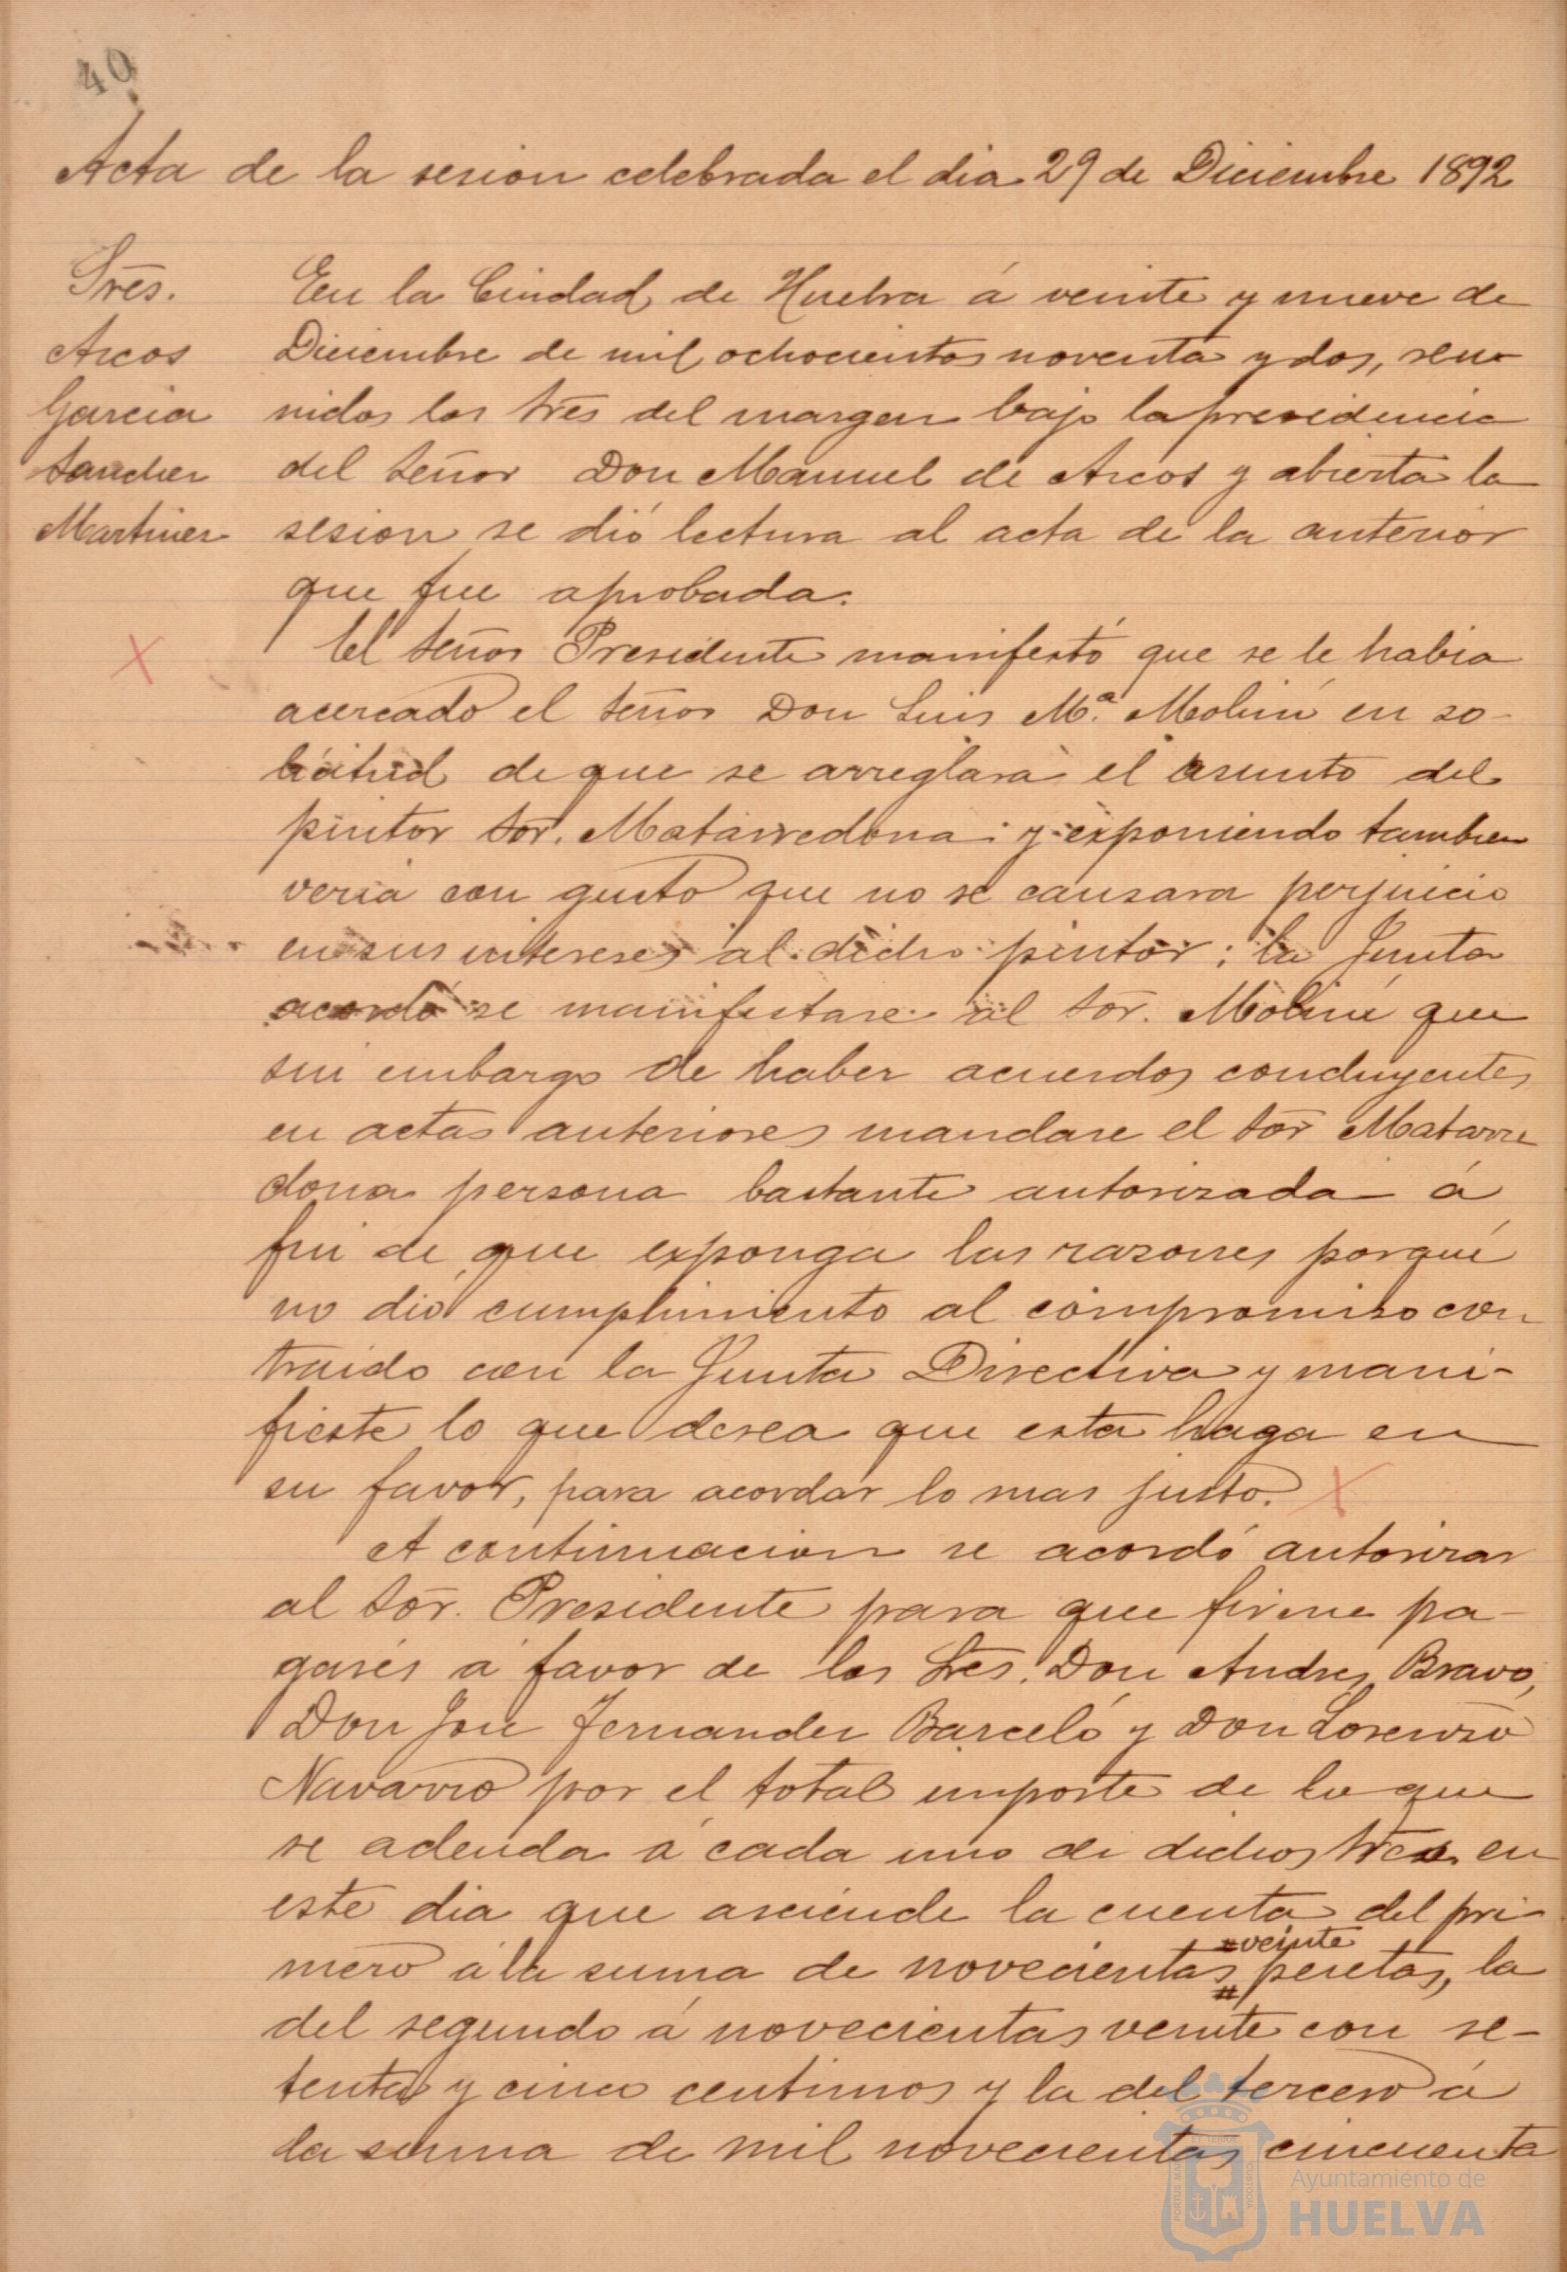 40
Acta de la sesion celebrada el dia 29 de Diciembre 1892
Sres.
Arcos
Garcia
Sanchez
Martinez
En la Ciudad de Huelva á veinte y nueve de
Diciembre de mil ochocientos noventa y dos, reu-
nidos los Sres del margen bajo la presidencia
del Señor Don Manuel de Arcos y abierta la
sesion se dió lectura al acta de la anterior
que fue aprobada.
El Señor Presidente manifestó que se le habia
acercado el Señor Don Luis Mª. Molini en so-
licitud de que se arreglara el asunto del
pintor Sor. Matarredona y exponiendo tambien
veria con gusto que no se causara perjuicio
en sus intereses al dicho pintor; la Junta
acordó se manifestase al Sor. Molini que
sin embargo de haber acuerdos concluyentes
en actas anteriores mandase el Sor Matarre
dona persona bastante autorizada á
fin de que exponga las razones porqué
no dió cumplimiento al compromiso con
traido con la Junta Directiva y mani-
fieste lo que desea que esta haga en
su favor, para acordar lo mas justo.
A continuacion se acordó autorizar
al Sor. Presidente para que firme pa-
garés á favor de los Sres. Don Andres Bravo,
Don José Fernandez Barceló y Don Lorenzo
Navarro por el total importe de lo que
se adeuda á cada uno de dichos Sres. en
este dia que asciende la cuenta del pri-
#veinte
mero á la suma de novecientas # pesetas, la
del segundo á novecientas veinte con se-
tenta y cinco centimos y la del tercero á
la suma de mil novecientas cincuenta
PORTUS MARIS ET TERRAE CUSTODIA
Ayuntamiento de
HUELVA